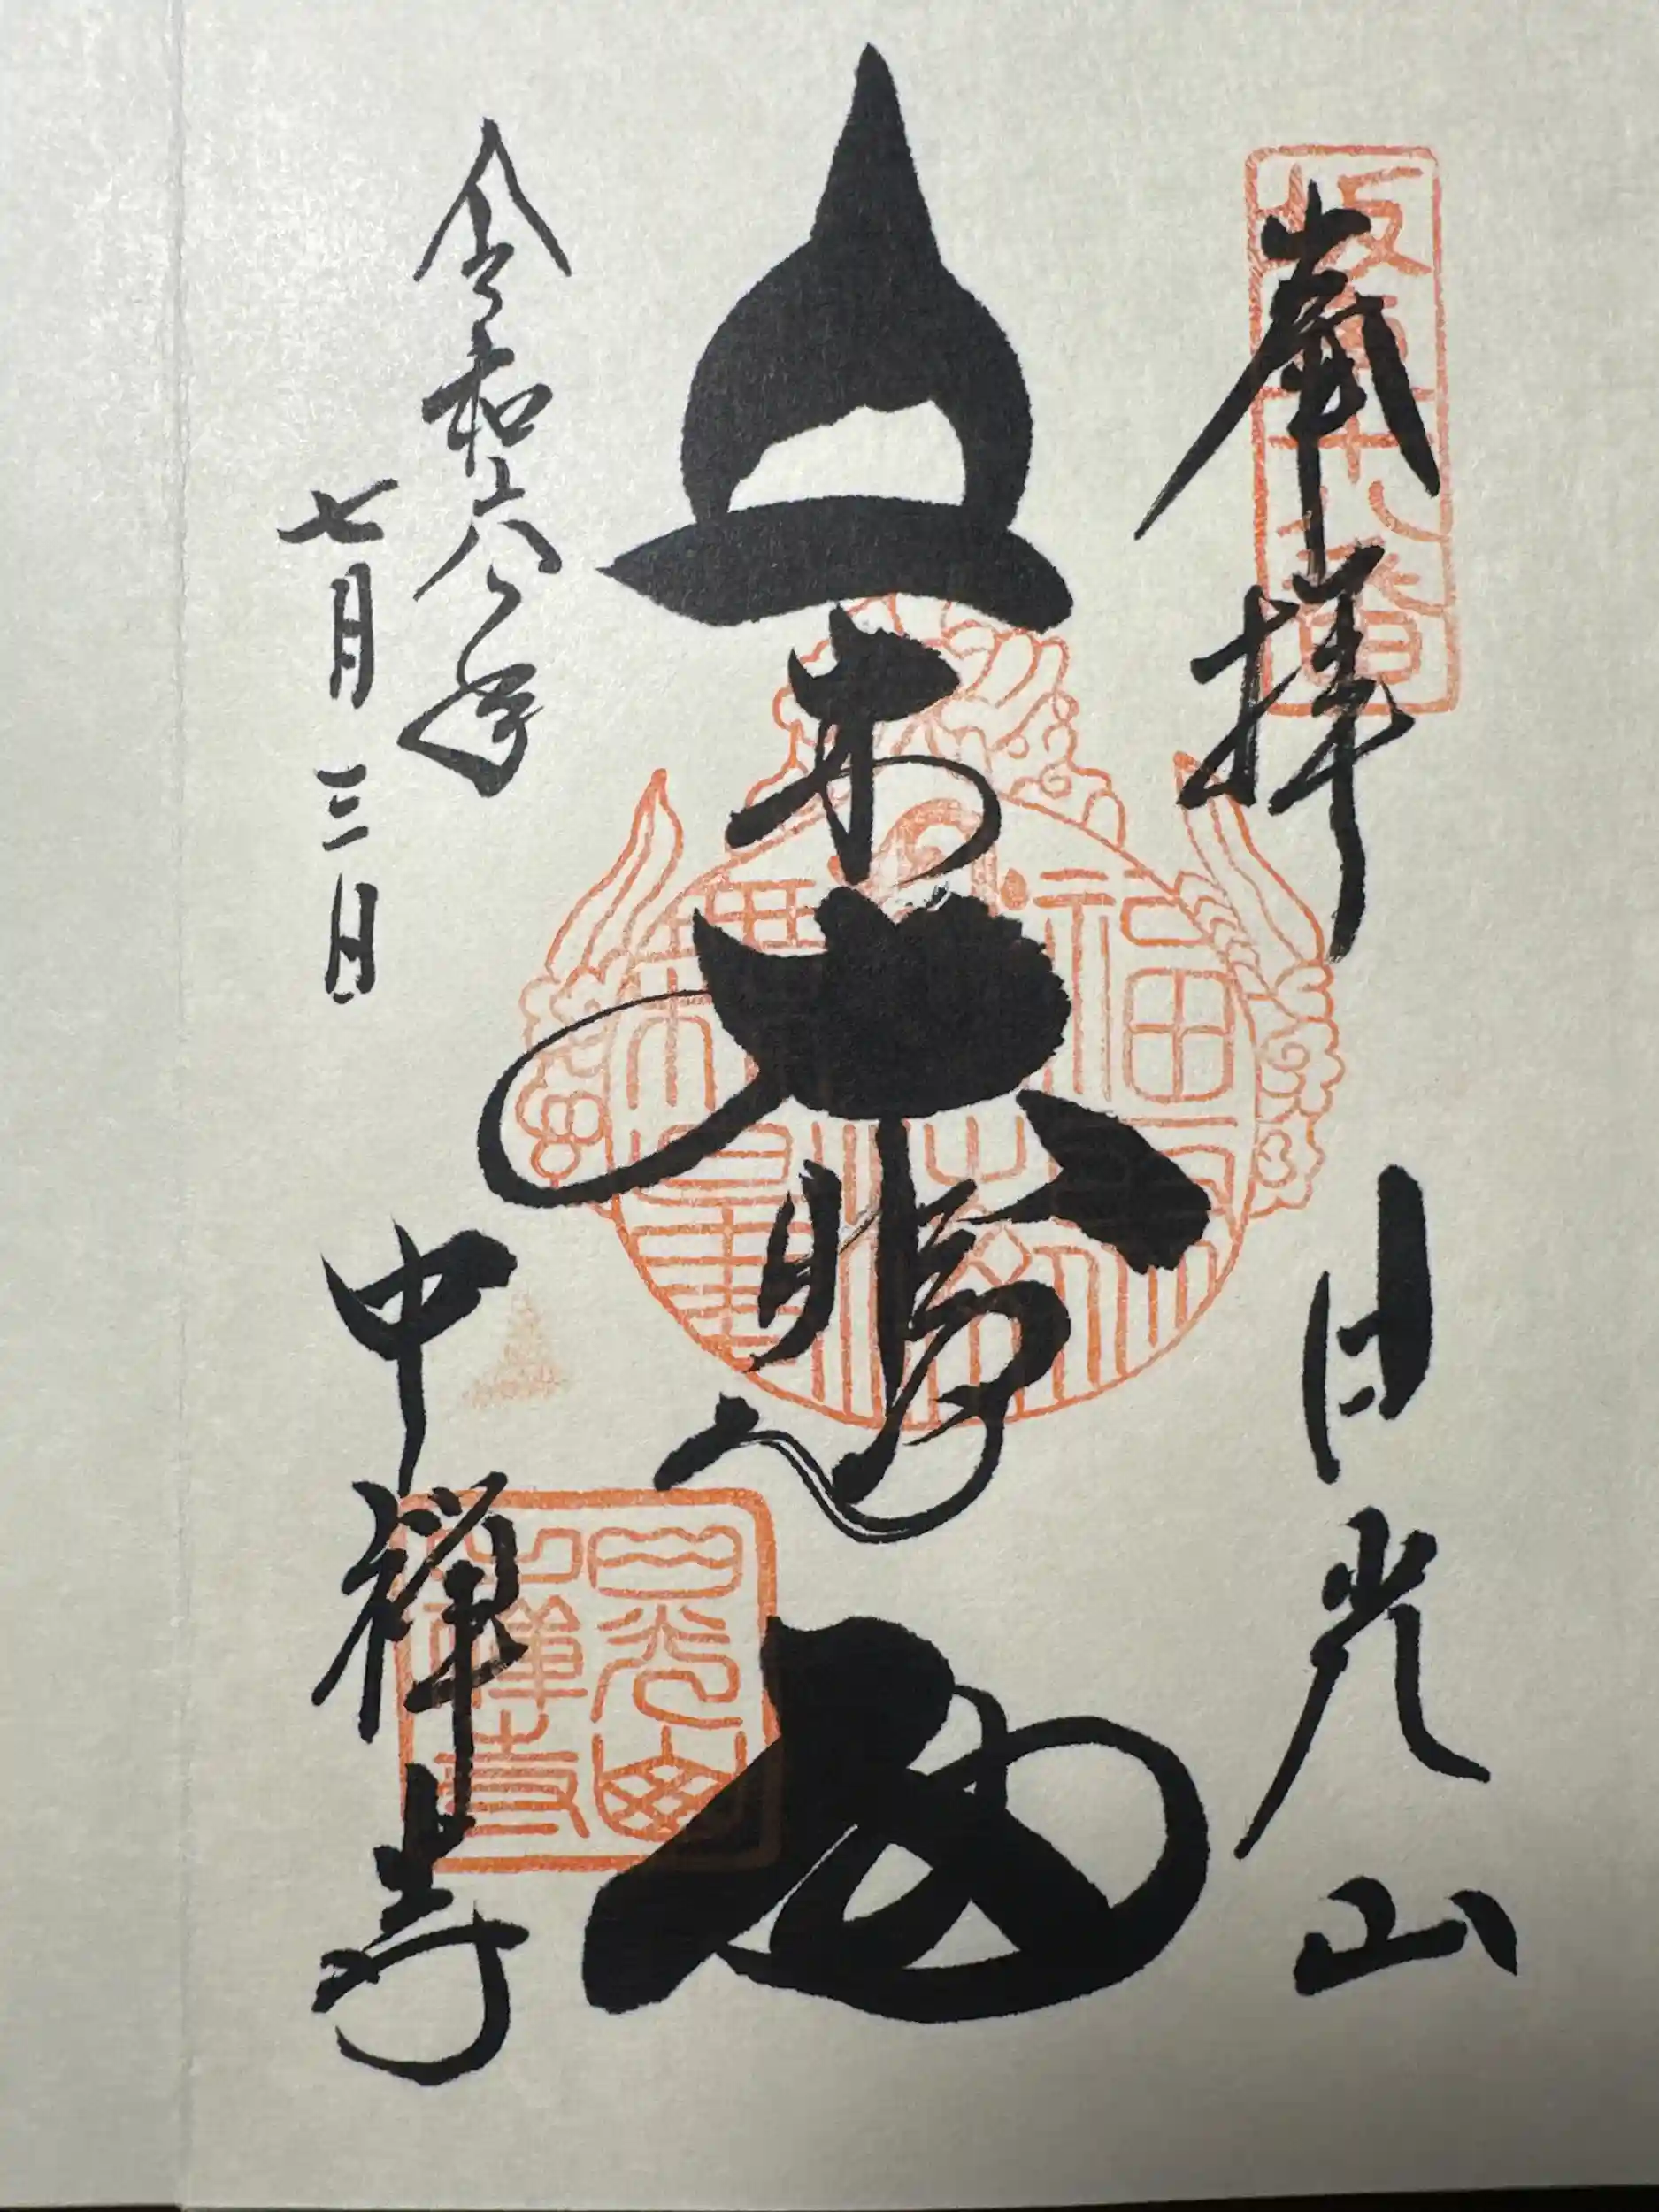 坂東十八番
奉拝
日光山
立木大悲
令和六年
七月三日
中禅寺
日光山
中禅寺